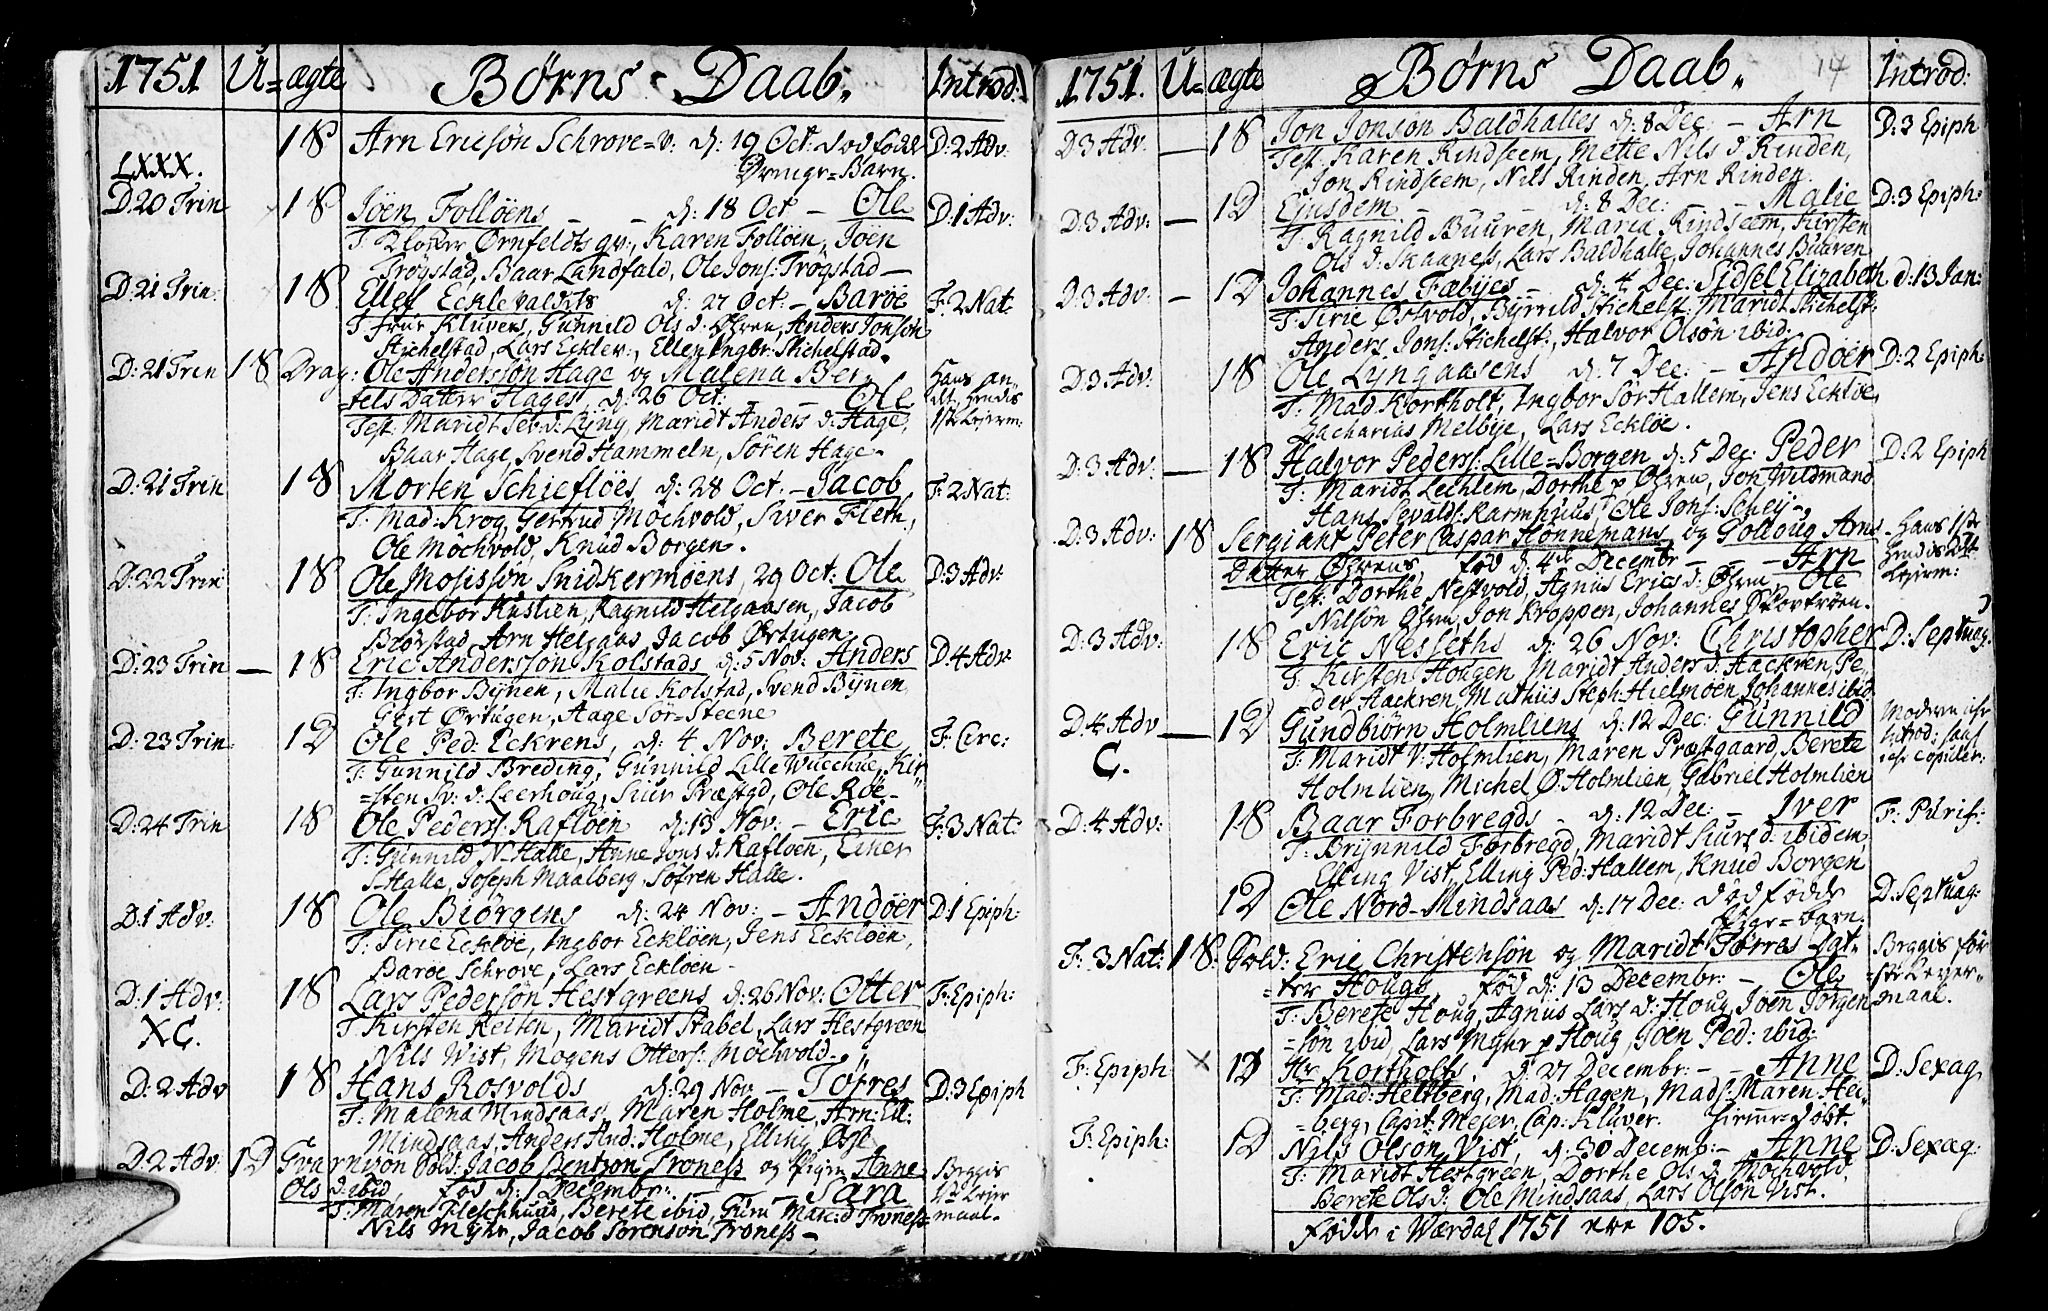 1751 U= ægte Børns Daab. Introd:
18 Arn Ericsøn Schrove=v: d: 19 Oct: dødfødd D: 2 Adv:
LXXX. Drenge=Barn.
D: 20 Trin 18 Joen Følløens d: 18 Oct Ole D: 1 Adv:
T: Kloster Ørnfeldts qv:, Karen Følløen, Joen
Trøgstad, Baar Landfald, Ole Jons: Trøgstad
D: 21 Trin: 18 Ellef Ecklevaldets d: 27 Oct: Baroe F: 2 Nat:
T: frue Kluvers, Gunnild Ols d: Øhren, Anders Jonsøn
Stichelstad, Lars Ecklev:, Ellen Ingbr: Stichelstad.
D: 21 Trin 18 Drag: Ole Andersøn Hage og Malena Ber= Hans an=
tels Datter Hages, d: 26 Oct: Ole det, hendis
Test: Maridt Seb: d: Lyng, Maridt Anders d: Hage, 1ste Lejerm:
Baar Hage, Svend Hammeln, Søren Hage
D: 21 Trin 18 Morten Schiefløes d: 28 Oct: Jacob F: 2 Nat:
T: Mad: Krog, Gertrud Möchvold, Siver Flem,
Ole Möchvold, Knud Borgen.
D: 22 Trin 18 Ole Mosissøn Snidkermoens, 29 Oct: Ole D: 3 Adv:
T: Ingebor Kuslien, Ragnild Helgaasen, Jacob
Biørstad, Arn Helgaas, Jacob Ørtugen
D: 23 Trin 18 Eric Andersøn Kolstads d: 5 Nov: Anders D: 4 Adv:
T: Ingbor Bynen, Malie Kolstad, Svend Bynen
Gert Ørtugen, Aage Sør=Steene
D: 23 Trin: 12 Ole Ped: Eckrens, d: 4 Nov: Berete F: Circ:
T: Gunnild Breding, Gunnild Lille Wucchue, Kir=
=sten Sv: d: Leerhoug, Siur Præstgd, Ole Røe
D: 24 Trin 18 Ole Peders: Kafløen d: 13 Nov: Eric F: 3 Nat:
T: Gunnild N=Halle, Anne Jons d: Kafløen, Einer
S=Halle, Joseph Maalberg, Søfren Halle.
D: 1 Adv: 18 Ole Biörgens d: 24 Nov: Andøer D: 1 Epiph:
T: Sirie Eckløe, Ingbor Eckløen, Jens Eckløen,
Baroe Schrove, Lars Eckløen
D: 1 Adv: 18 Lars Pedersøn Hestgreens d: 26 Nov: Otter F: Epiph:
XC. T: Kirsten Kelten, Maridt Stabel, Lars Hestgreen
Nils Wist, Mogens Otters: Möchvold
D: 2 Adv 18 Hans Rosvolds d: 29 Nov Tørres D: 3 Epiph
T: Malena Mindsaas, Maren Holme, Arn: Ell:
Mindsaas, Anders And: Holme, Elling Øst
D: 2 Adv: 12 Gvarnison Sold: Jacob Bentzon Troness og Pigen Anne Beggis
Ols d: ibid, fød d: 1 Decembr: Sara 1ste Lejer
T: Maren Fleschhuus, Berete ibid, Guru Mar: d: Troness maal.
Nils Myhr, Jacob Sorenson Troness
1751. U= ægte Børns Daab. 14 Introd:
D 3 Adv: 18 Jon Jonson Baldhalles d: 8 Dec: Arn D: 3 Epiph
Test: Karen Rindseem, Mette Nils d: Rinden,
Jon Rindseem, Nils Rinden, Arn Rinden.
D: 3 Adv: 12 Ejusdem d: 8 Dec: Malie D: 3 Epiph:
T: Ragnild Buuren, Maria Rindseem, Kirsten
Ols d: Skaaness, Lars Baldhalle, Johannes Buuren
D: 3 Adv: 12 Johannes Fæbyes d: 4 Dec: Sidsel Elizabeth d: 13 Jan:
T: Sirie Østvold, Byrrild Stichelst: Maridt Stichelst:
Anders Jons: Stichelst:, Halvor Olsøn ibid:
D: 3 Adv: 18 Ole Lyngaasens d: 7 Dec: Andøer D: 2 Epiph:
T: Mad Kortholt, Ingbor Sør Hallem, Jens Eckløe,
Zacharias Melbye, Lars Eckløe.
D: 3 Adv: 18 Halvor Peders: Lille=Borgen d: 5 Dec: Peder D: 2 Epiph
T: Maridt Lechlem, Dorthe p Øhren, Jon Wildmand
Hans Sevalds: Karmhuus, Ole Jons: Schey
D: 3 Adv: 18 Sergiant Peter Caspar Hønnemans og Golloug Arns Hans 1ste
Datter Øhrens, fød d: 4de Decembr Arn hendis 2det
Test: Dorthe Nestvold, Agnis Erics d: Øhren, Ole Lejerm:
Nilsøn Øhren, Jon Kroppen, Johannes Skortrøen.
D: 3 Adv: 18 Eric Nesseths d: 26 Nov: Christopher D: Septuag:
T: Kirsten Hougen, Maridt Anders d: Hackren, Pe=
der Hackren, Mathis Steph: Hielmoen, Johannes ibid
D: 4 Adv 12 Gundbiørn Holmliens d: 12 Dec: Gunnild Moderen ej
C. T: Maridt V: Holmlien, Maren Præstgaard, Berete Introd:
Holmlien, Michel Ø: Holmlien, Gabriel Holmlien copuler:
D: 4 Adv: 18 Baar Forbregds d: 12 Dec: Iver F: Purif:
T: Brynnild Forbregd, Maridt Siurs d: ibidem,
Elling Vist, Elling Ped: Hallem, Knud Borgen
12 Ole Nord=Mindsaas d: 17 Dec: dødfødde D. Septuag:
Pige=barn.
F: 3 Nat: 18 Sold: Eric Christensøn og Maridt Tørres Dat= Beggis før=
=ter Hougs fød d: 13 Decembr: Ole =ste Lejer=
T: Berete Houg, Agnus Lars d: Houg, Joen Jörgen maal.
=søn ibid, Lars Myhr p Houg, Joen Ped: ibid:
F: Epiph × 12 Hr Kortholts, d: 27 Decembr: Anne D: Sexag
T: Mad: Heltberg, Mad: Hagen, Mads: Maren Hel=
=berg, Capit: Meyer, Cap: Kluver. Hiemme=døbt.
F: Epiph: 12 Nils Olson Vist, d: 30 Decemb: Anne D: Sexag:
T: Maridt Hestgreen, Dorthe Ols d: Möchvold,
Berete Ols d: Ole Mindsaas, Lars Olsøn Vist.
Fødde i Wærdal 1751 ere 105.